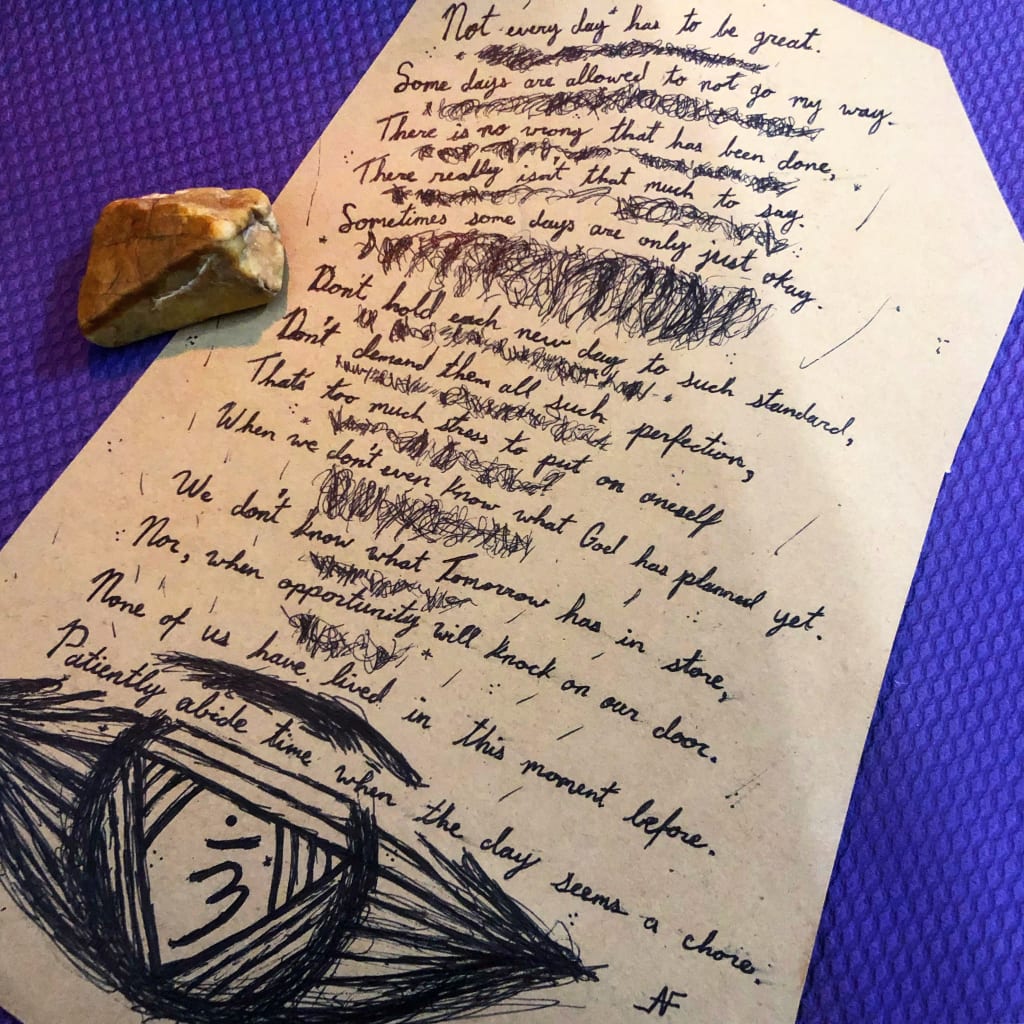 Not every day has to be great.
Some days are allowed to not go my way.
There is no wrong that has been done,
There really isn't that much to say.
Sometimes some days are only just okay.
Don't hold each new day to such standard,
Don't demand them all such perfection,
Thats too much stress to put on oneself
When we don't even know what God has planned yet.
We don't know what Tomorrow has in store,
Nor, when opportunity will knock on our door.
None of us have lived in this moment before.
Patiently abide time when the day seems a chore.
AF